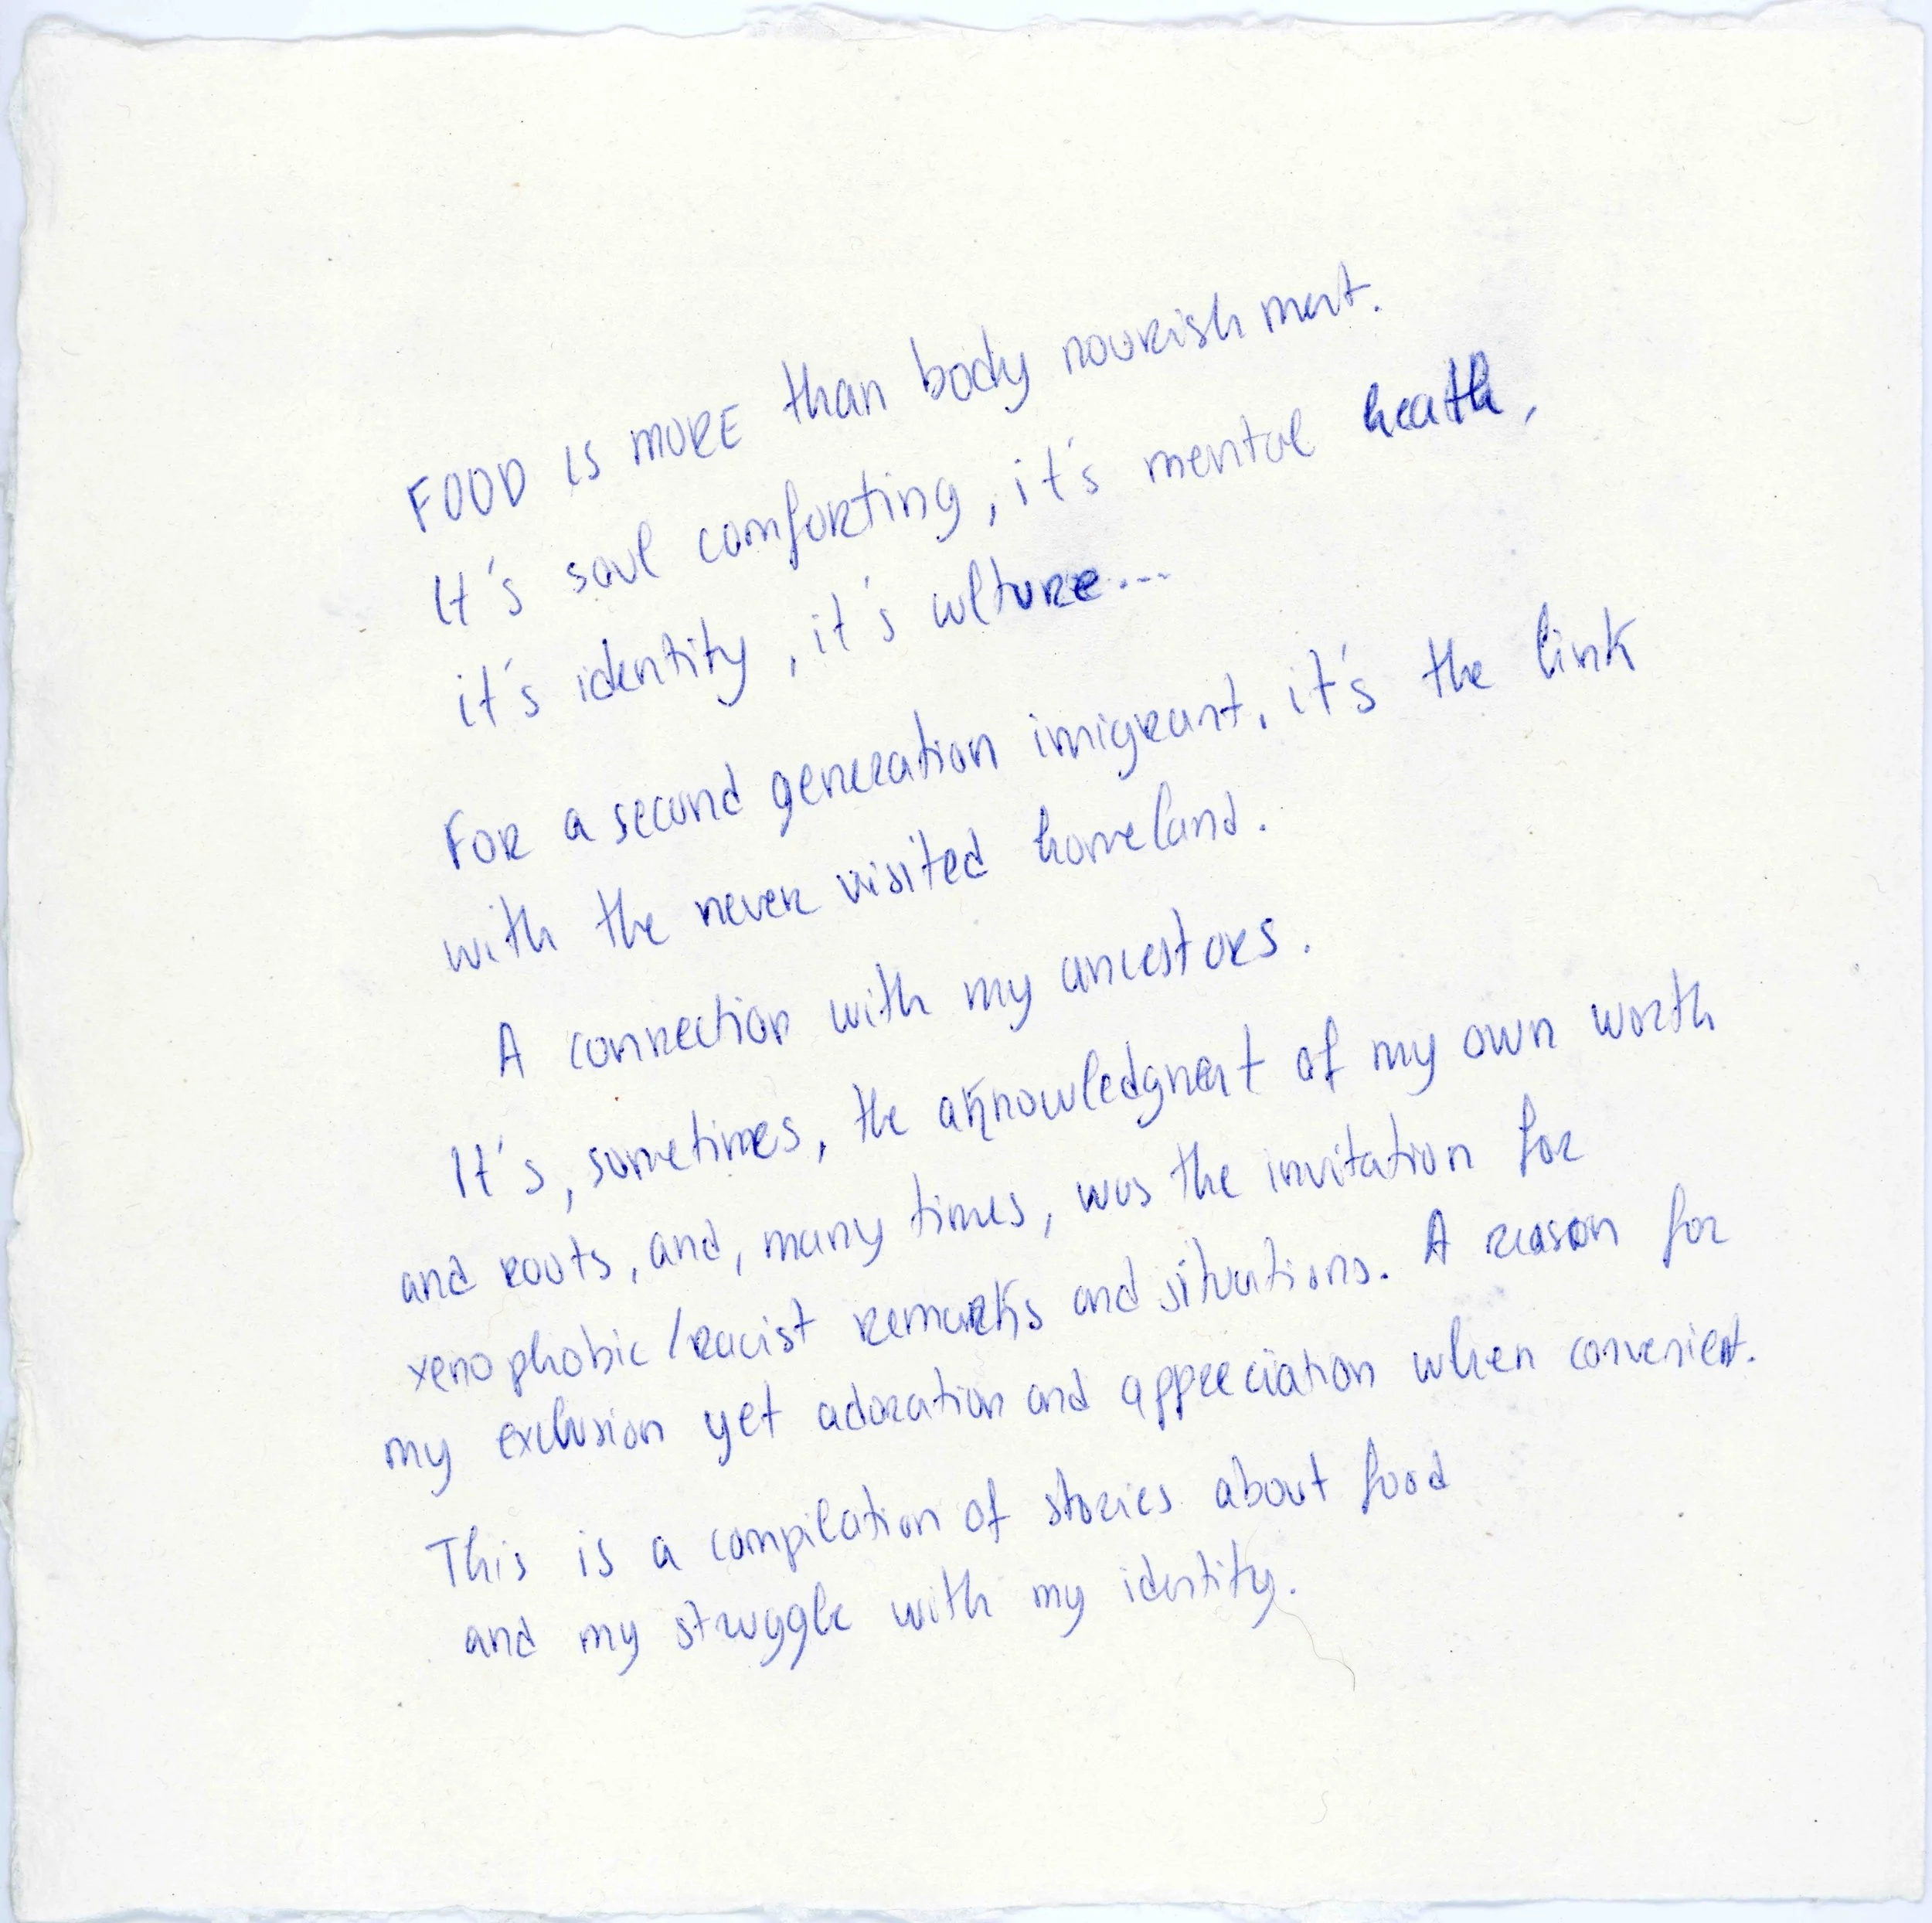 FOOD IS MORE than body nourishment.
It's soul comforting, it's mental heath,
it's identity, it's culture...
For a second generation imigrant, it's the link
with the never visited homeland.
A connection with my ancestors.
It's, sometimes, the aknowledgment of my own worth
and roots, and, many times, was the invitation for
xenophobic/racist remarks and situations. A reason for
my exclusion yet adoration and appreciation when convenient.
This is a compilation of stories about food
and my struggle with my identity.